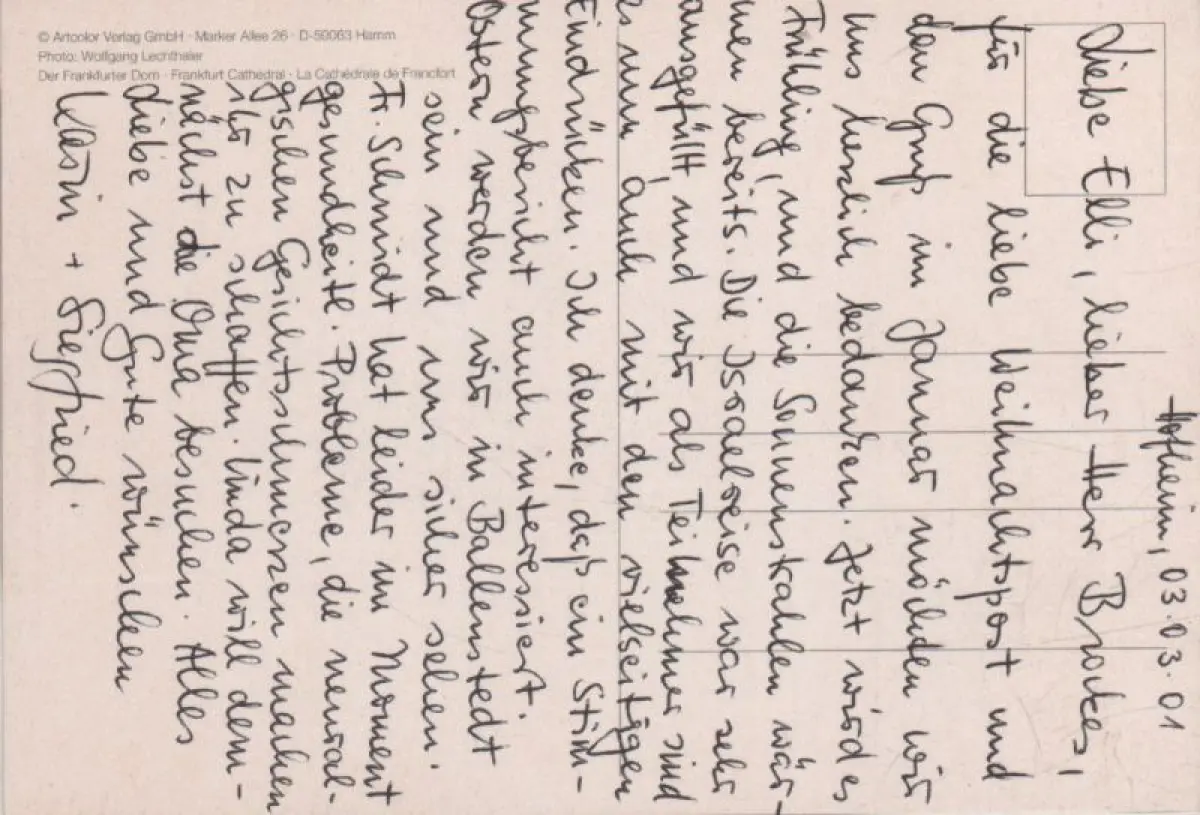 © Artcolor Verlag GmbH · Marker Allee 26 · D-59063 Hamm
Photo: Wolfgang Lechthaler
Der Frankfurter Dom · Frankfurt Cathedral · La Cathédrale de Francfort
Hofheim, 03.03.01
Liebe Elli, lieber Herr Brockes,
für die liebe Weihnachtspost und
den Gruß im Januar möchten wir
uns herzlich bedanken. Jetzt wird es
Frühling, und die Sonnenstrahlen wär-
men bereits. Die Israelreise war sehr
ausgefüllt, und wir als Teilnehmer sind
es nun auch mit den vielseitigen
Eindrücken. Ich denke, daß ein Stim-
mungsbericht auch interessiert.
Ostern werden wir in Ballenstedt
sein und uns sicher sehen.
Fr. Schmidt hat leider im Moment
gesundheitl. Probleme, die neural-
gischen Gesichtsschmerzen machen
ihr zu schaffen. Linda will dem-
nächst die Oma besuchen. Alles
Liebe und Gute wünschen
Karin + Siegfried.